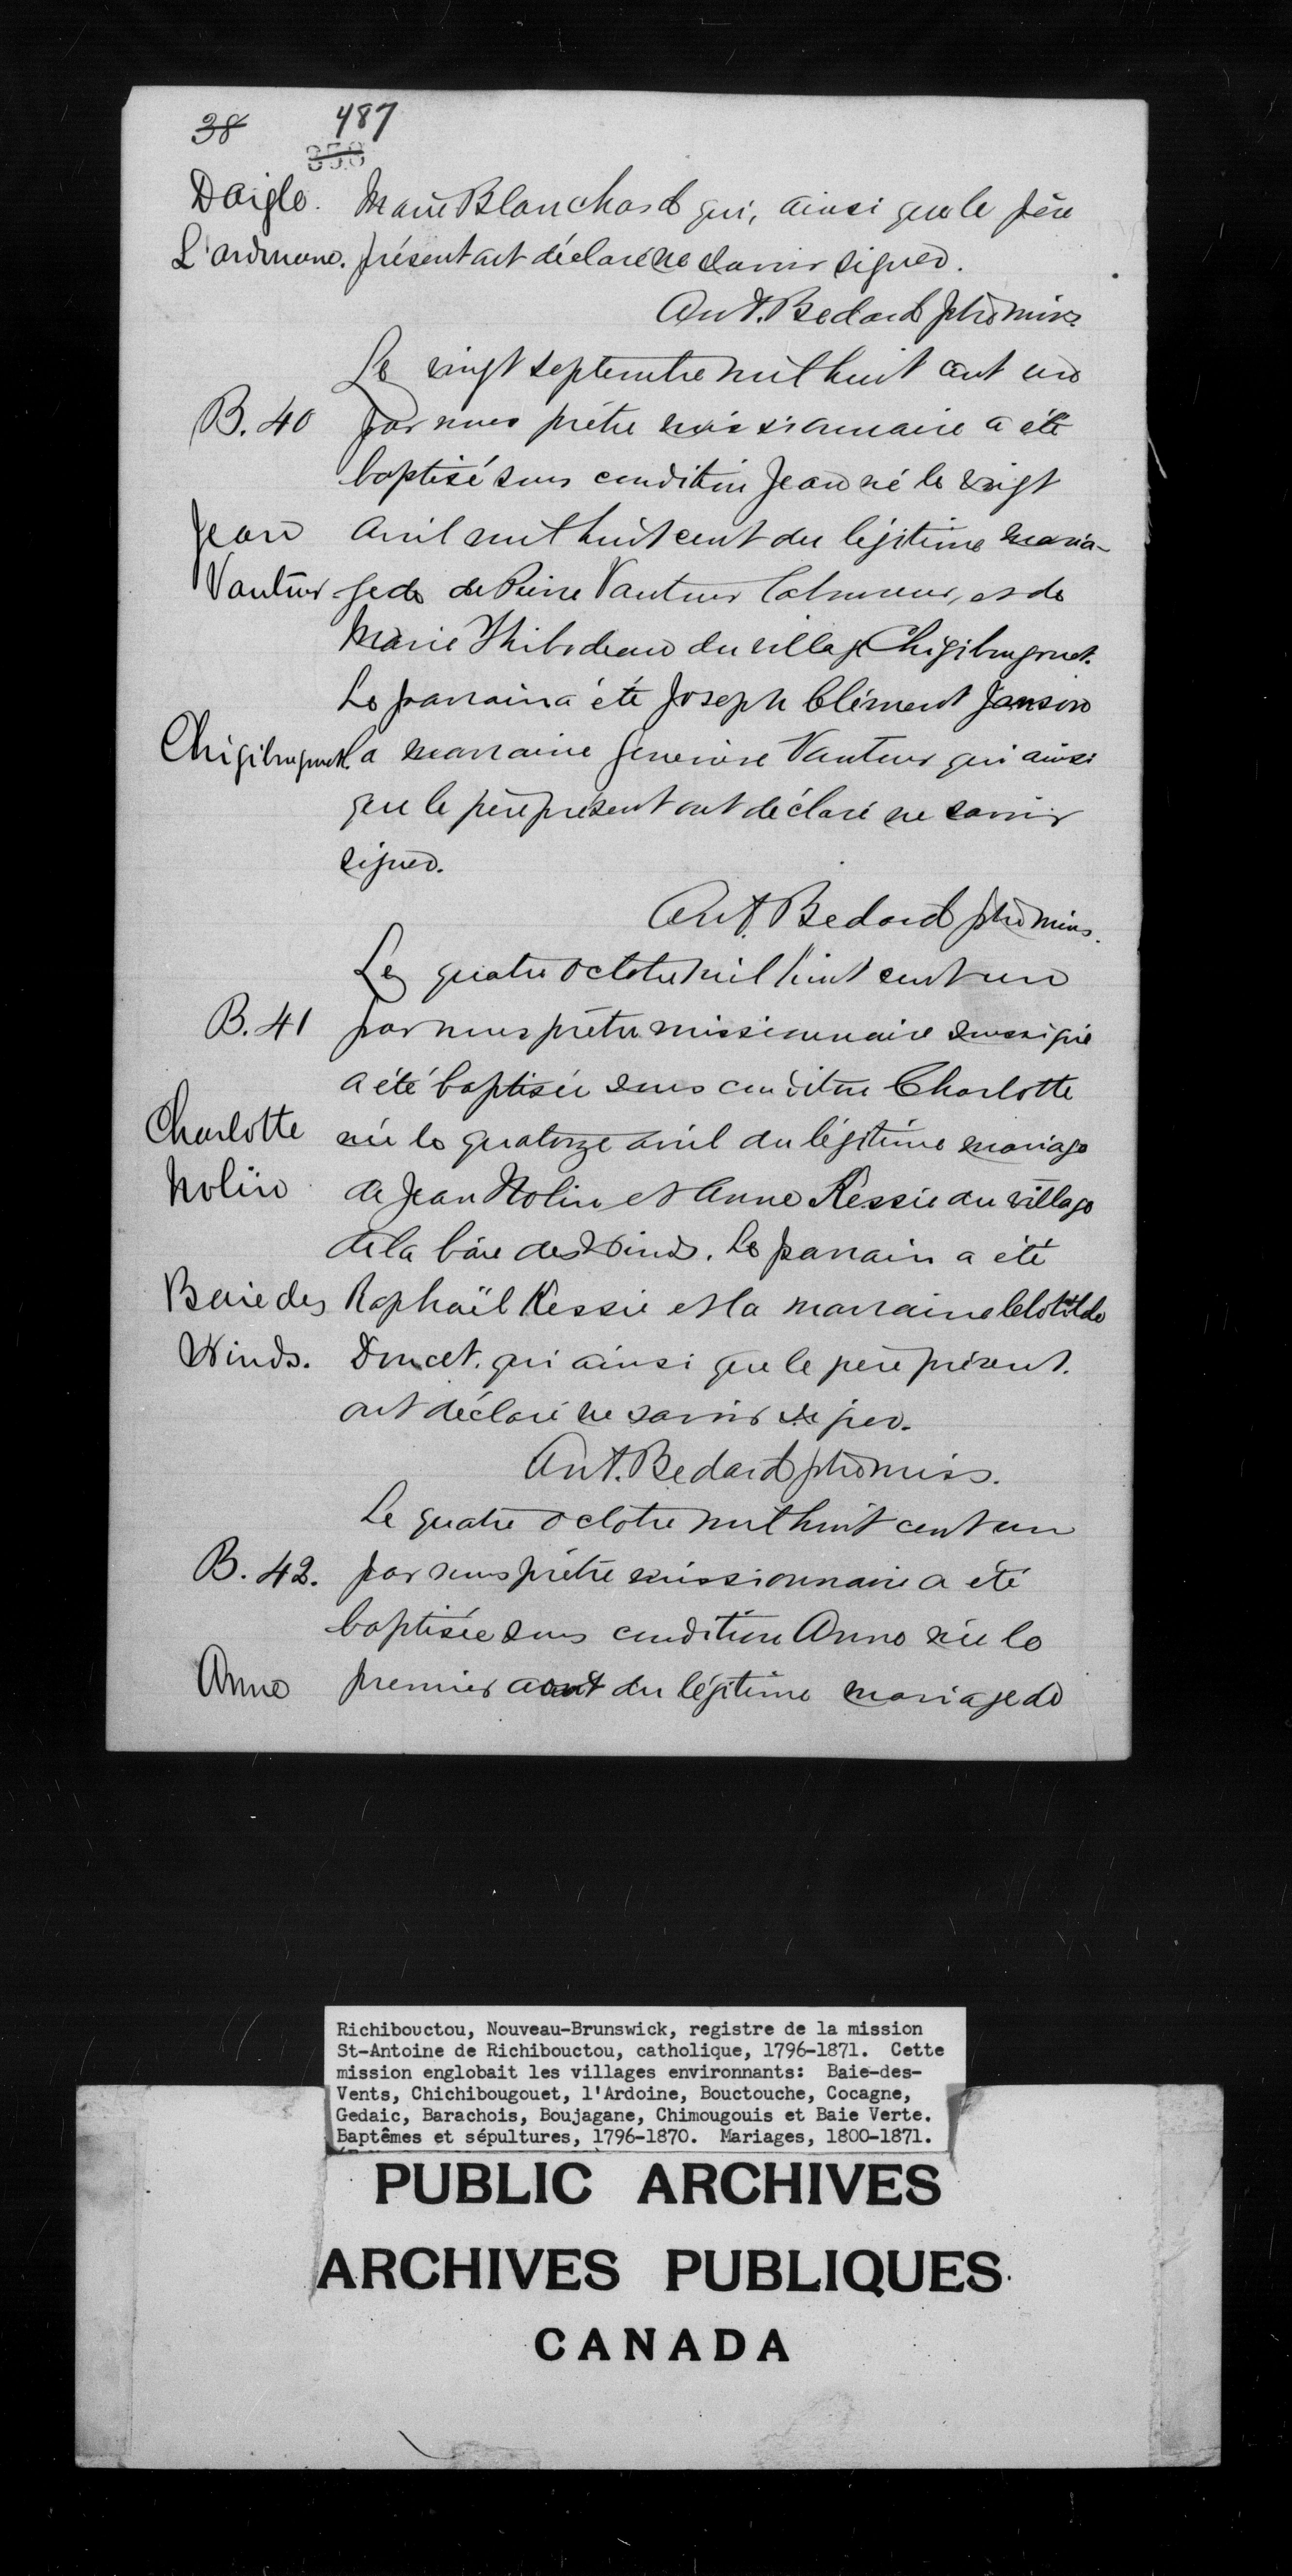 38 487
358
Daigle. Marie Blanchard qui, ainsi que le père
L'ardouane. présent ont déclaré ne savoir signer.
Ant. Bedard ptre miss.
Le vingt septembre mil huit cent un
B. 40 par nous prêtre missionnaire a été
baptisé sous condition Jean né le vingt
Jean avril mil huit cent du légitime maria-
Vautour ge de de Pierre Vautour laboureur, et de
Marie Thibodeau du village Chigibougouet.
Le parrain a été Joseph Clément Janson
Chigibougouet. la marraine Genevieve Vautour qui ainsi
que le père présent ont déclaré ne savoir
signer.
Ant. Bedard ptre miss.
Le quatre octobre mil huit cent un
B. 41 par nous prêtre missionnaire soussigné
a été baptisée sous condition Charlotte
Charlotte née le quatorze avril du légitime mariage
Nolin de Jean Nolin et Anne Kessie du village
de la baie des Winds. Le parrain a été
Baie des Raphaël Kessie et la marraine Clotilde
Winds. Doucet. qui ainsi que le père présent.
ont déclaré ne savoir signer.
Ant. Bedard ptre miss.
Le quatre octobre mil huit cent un
B. 42. par nous prêtre missionnaire a été
baptisée sous condition Anne née le
Anne premier aout du légitime mariage de
Richibouctou, Nouveau-Brunswick, registre de la mission
St-Antoine de Richibouctou, catholique, 1796-1871. Cette
mission englobait les villages environnants: Baie-des-
Vents, Chichibougouet, l'Ardoine, Bouctouche, Cocagne,
Gedaic, Barachois, Boujagane, Chimougouis et Baie Verte.
Baptêmes et sépultures, 1796-1870. Mariages, 1800-1871.
PUBLIC ARCHIVES
ARCHIVES PUBLIQUES
CANADA